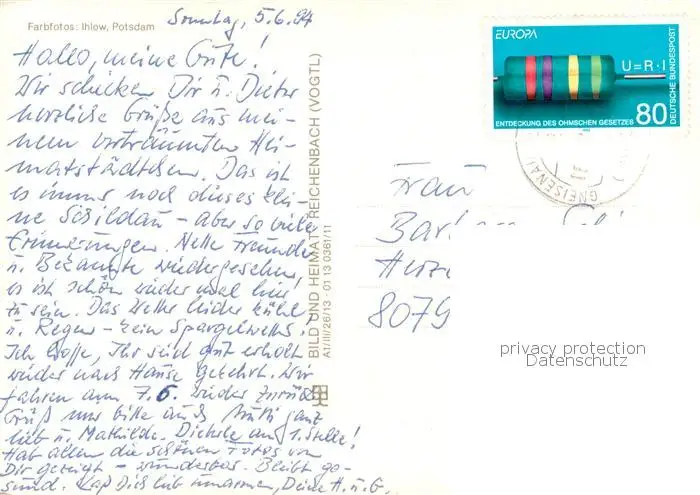 Farbfotos: Ihlow, Potsdam
Sonntag, 5.6.94
Hallo, meine Gute!
Wir schicken Dir u. Dieter
herzliche Grüße aus mei-
nem verträumten Hei-
matstädtchen. Das ist
es immer noch dieses klei-
ne Schildau – aber so viele
Erinnerungen. Nette Freunde
u. Bekannte wiedergesehen,
es ist schön wieder mal hier
zu sein. Das Wetter leider kühl
u. Regen – kein Spargelwetter!
Ich hoffe, Ihr seid gut erholt
wieder nach Hause gekehrt. Wir
fahren am 7.6. wieder zurück
Grüß mir bitte auch ganz
lieb u. Mathilde. an 1. Stelle!
Hab allen die schönen Fotos von
Dir gezeigt – wunderbar. Bleibt ge-
sund. Laß Dich lieb umarmen, Deine H. u. G.
BILD UND HEIMAT REICHENBACH (VOGTL)
A1/III/26/13 · 01 13 0361/11
EUROPA
U=R·I
ENTDECKUNG DES OHMSCHEN GESETZES
80
DEUTSCHE BUNDESPOST
GNEISENAU
Frau
8079
privacy protection
Datenschutz